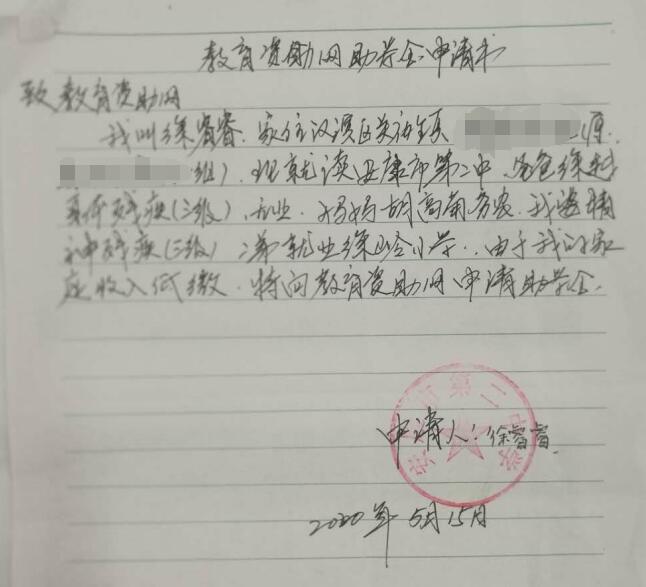 教育资助网助学金申请书
致教育资助网
我叫徐睿睿.家住汉滨区关祁镇
组).现就读安康市第二中.爸爸徐
身体残疾(二级).五业.妈妈胡高菊务农.我爸精
神残疾(三级)弟就业徐岭小学..由于我的家
庭收入低微.特向教育资助网申请助学金.
申请人:徐睿睿.
安市第二中学
2020年5月15日